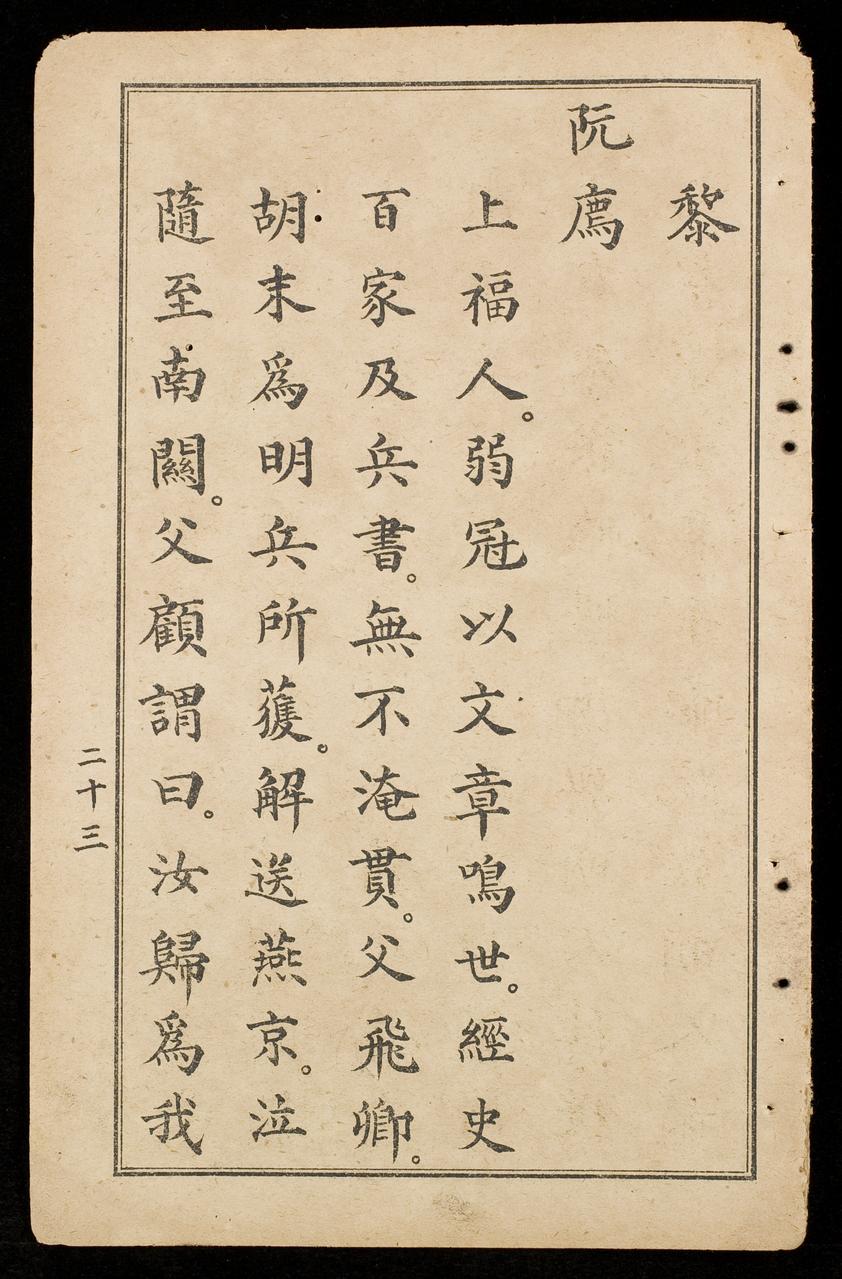 黎
阮廌
上福人。弱冠以文章鳴世。經史
百家及兵書。無不淹貫。父飛卿。
胡末爲明兵所獲。解送燕京。泣
隨至南關。父顧謂曰。汝歸爲我
二十三